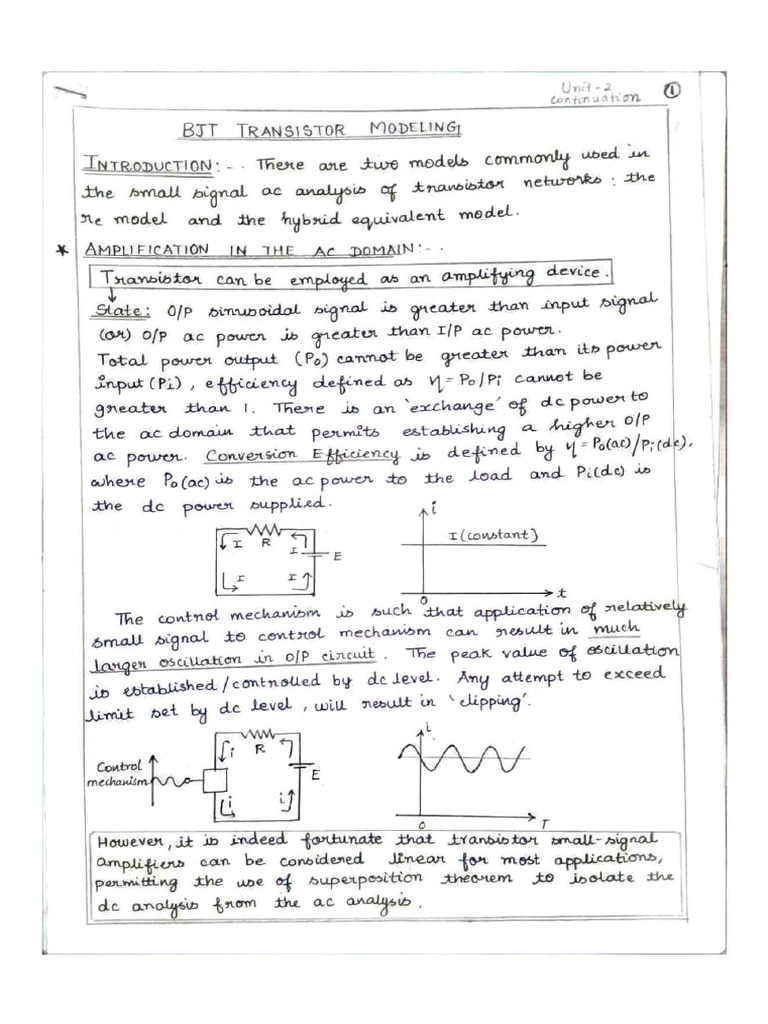 Unit-2
continuation
1
BJT TRANSISTOR MODELING
INTRODUCTION:-. There are two models commonly used in
the small signal ac analysis of transistor networks: the
re model and the hybrid equivalent model.
* AMPLIFICATION IN THE AC DOMAIN:-.
Transistor can be employed as an amplifying device.
State: O/P sinusoidal signal is greater than input signal
(or) O/P ac power is greater than I/P ac power.
Total power output (Po) cannot be greater than its power
input (Pi), efficiency defined as η = Po/Pi cannot be
greater than 1. There is an 'exchange' of dc power to
the ac domain that permits establishing a higher O/P
ac power. Conversion Efficiency is defined by η = Po(ac)/Pi(dc),
where Po(ac) is the ac power to the load and Pi(dc) is
the dc power supplied.
I R I E
I I
i
I (constant)
0 t
The control mechanism is such that application of relatively
small signal to control mechanism can result in much
larger oscillation in O/P circuit. The peak value of oscillation
is established/controlled by dc level. Any attempt to exceed
limit set by dc level, will result in 'clipping'.
Control
mechanism
i R E
i i
i
0 T
However, it is indeed fortunate that transistor small-signal
amplifiers can be considered linear for most applications,
permitting the use of superposition theorem to isolate the
dc analysis from the ac analysis.